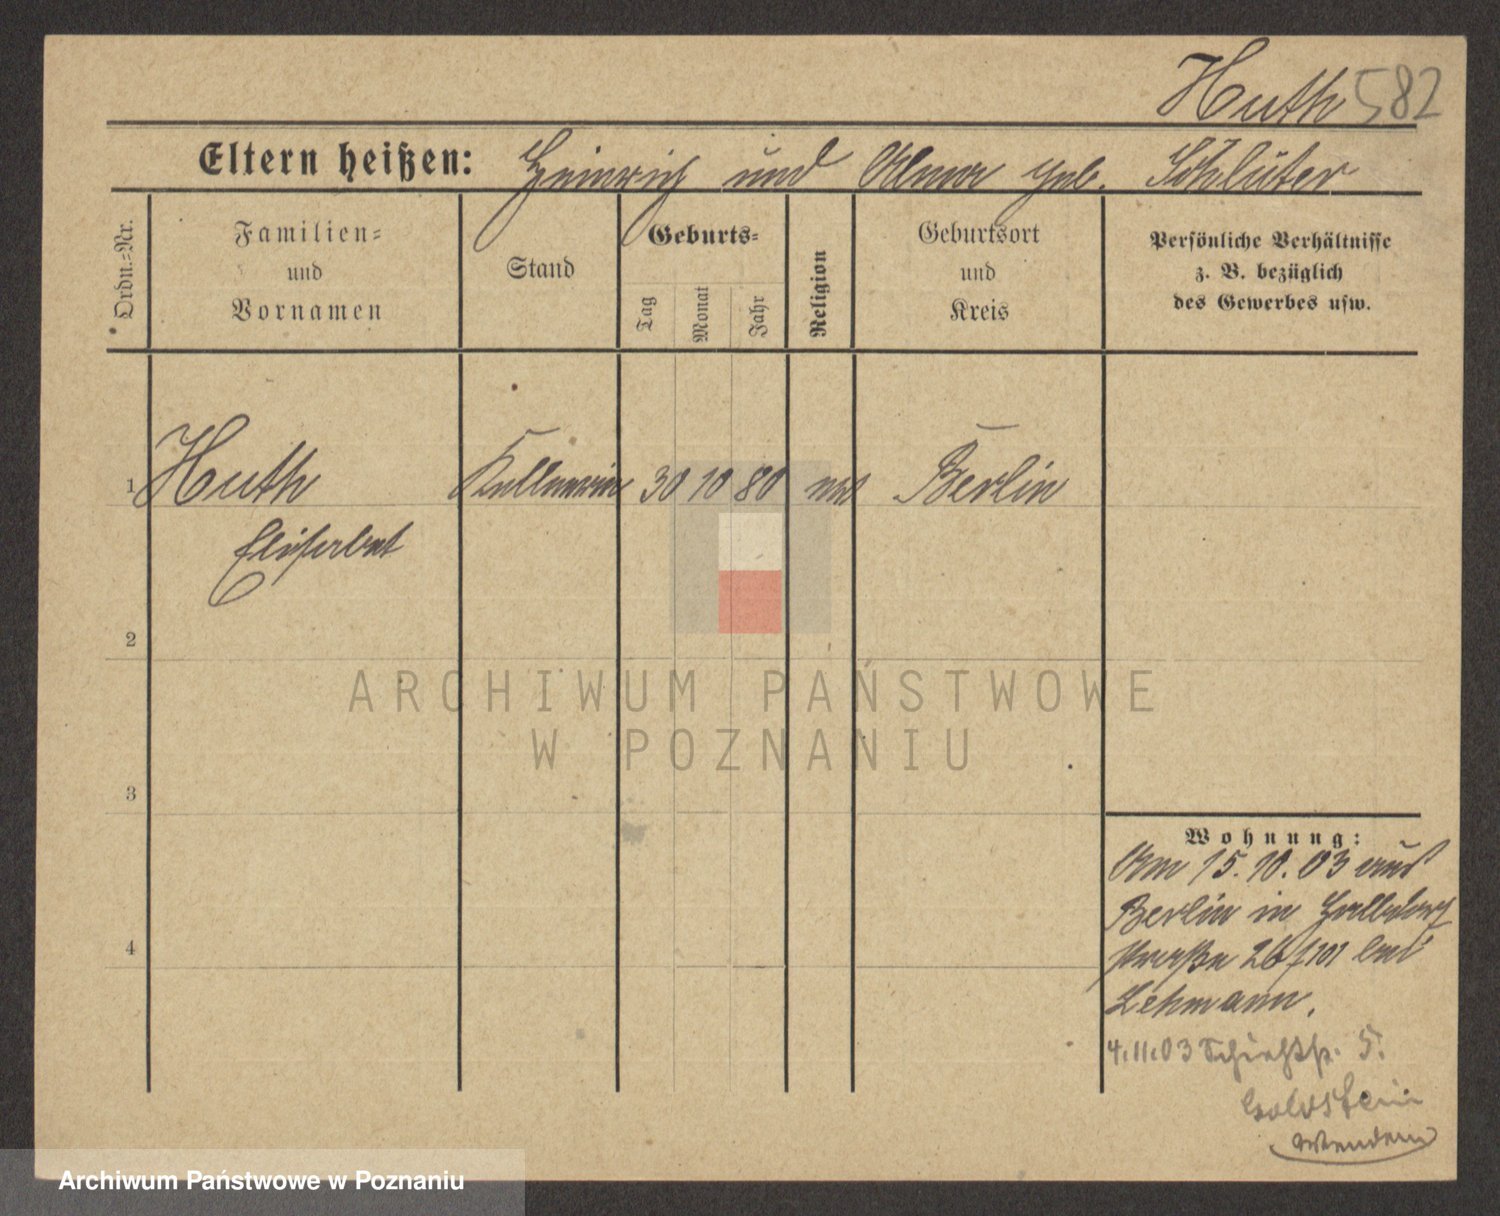 Huth 582
Eltern heißen: Heinrich und Alma geb. Schlüter
Ordn.-Nr.
Familien-
und
Vornamen
Stand
Geburts-
Tag
Monat
Jahr
Religion
Geburtsort
und
Kreis
Persönliche Verhältnisse
z. B. bezüglich
des Gewerbes usw.
1 Huth Kellnerin 30 10 80 Berlin
Elisabet
2
ARCHIWUM PAŃSTWOWE
W POZNANIU
3
4
Wohnung:
Am 15.10.03 aus
Berlin in
straße 26 bei
Lehmann.
4.11.03 5.
Goldstein
Wenden
Archiwum Państwowe w Poznaniu